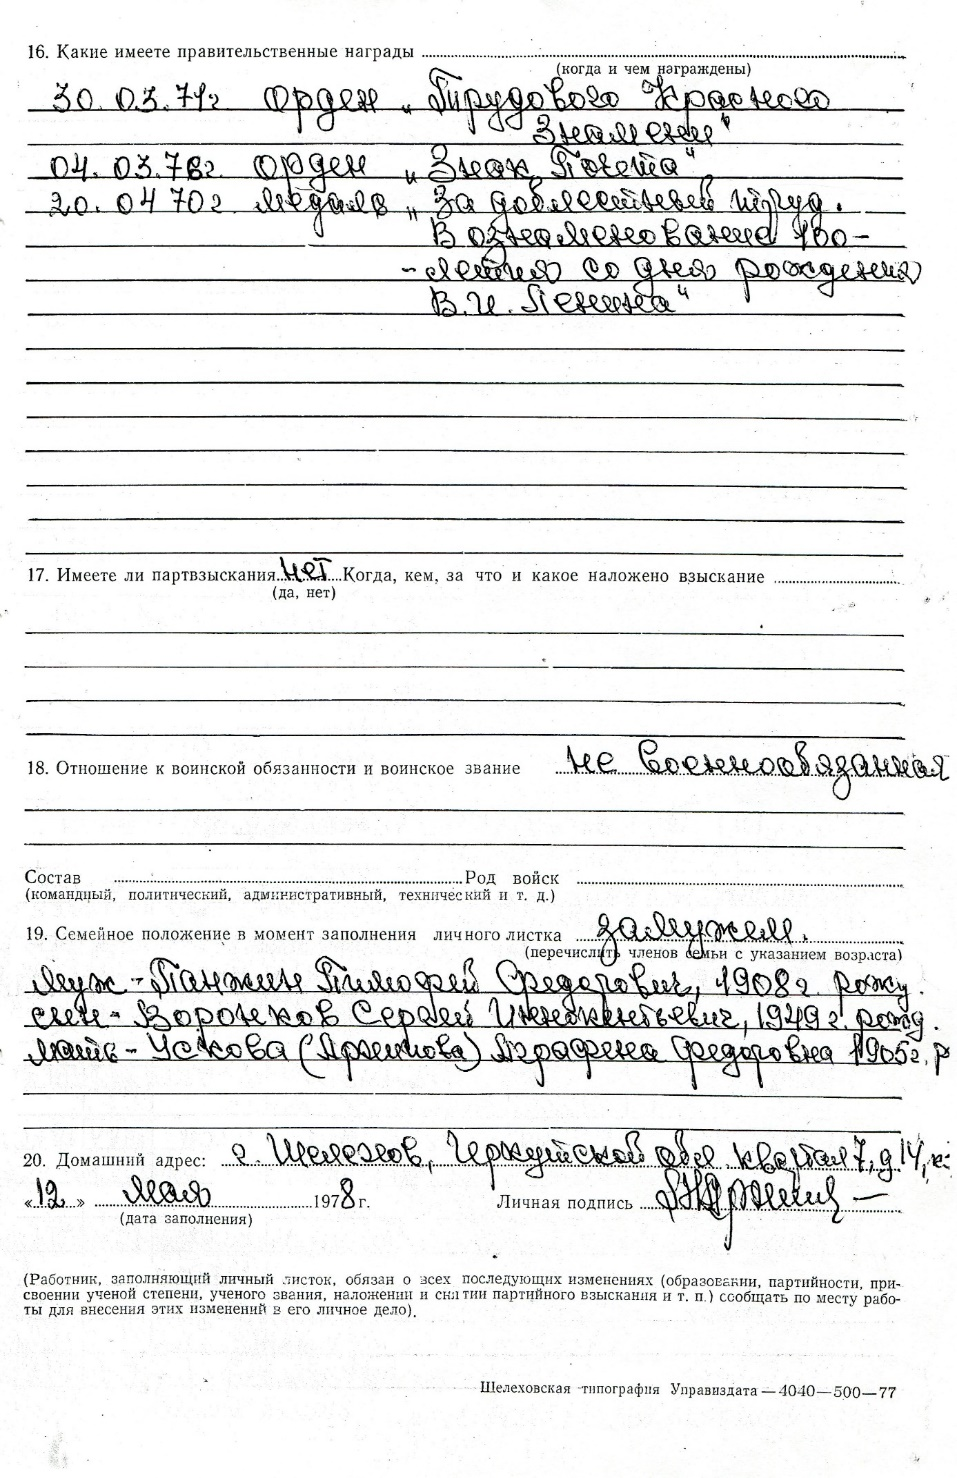 16. Какие имеете правительственные награды
(когда и чем награждены)
30.03.71г Орден „Трудового Красного
Знамени“
04.03.76г Орден „Знак Почета“
20.04 70г Медаль „За доблестный труд.
В ознаменование 100-
-летия со дня рождения
В.И. Ленина“
17. Имеете ли партвзыскания нет Когда, кем, за что и какое наложено взыскание
(да, нет)
18. Отношение к воинской обязанности и воинское звание не военнообязанная
Состав Род войск
(командный, политический, административный, технический и т. д.)
19. Семейное положение в момент заполнения личного листка замужем.
(перечислить членов семьи с указанием возраста)
Муж - Тимофей Федорович, 1908г рожд.
сын - Воронков Сергей Иннокентьевич, 1949 г. рожд.
мать - Ускова Аграфена Федоровна 1905г. р
20. Домашний адрес: г. Шелехов, Иркутской обл квартал 7, д. 14, к
«12» мая 1978 г. Личная подпись
(дата заполнения)
(Работник, заполняющий личный листок, обязан о всех последующих изменениях (образовании, партийности, при-
своении ученой степени, ученого звания, наложении и снятии партийного взыскания и т. п.) сообщать по месту рабо-
ты для внесения этих изменений в его личное дело).
Шелеховская типография Управиздата—4040—500—77